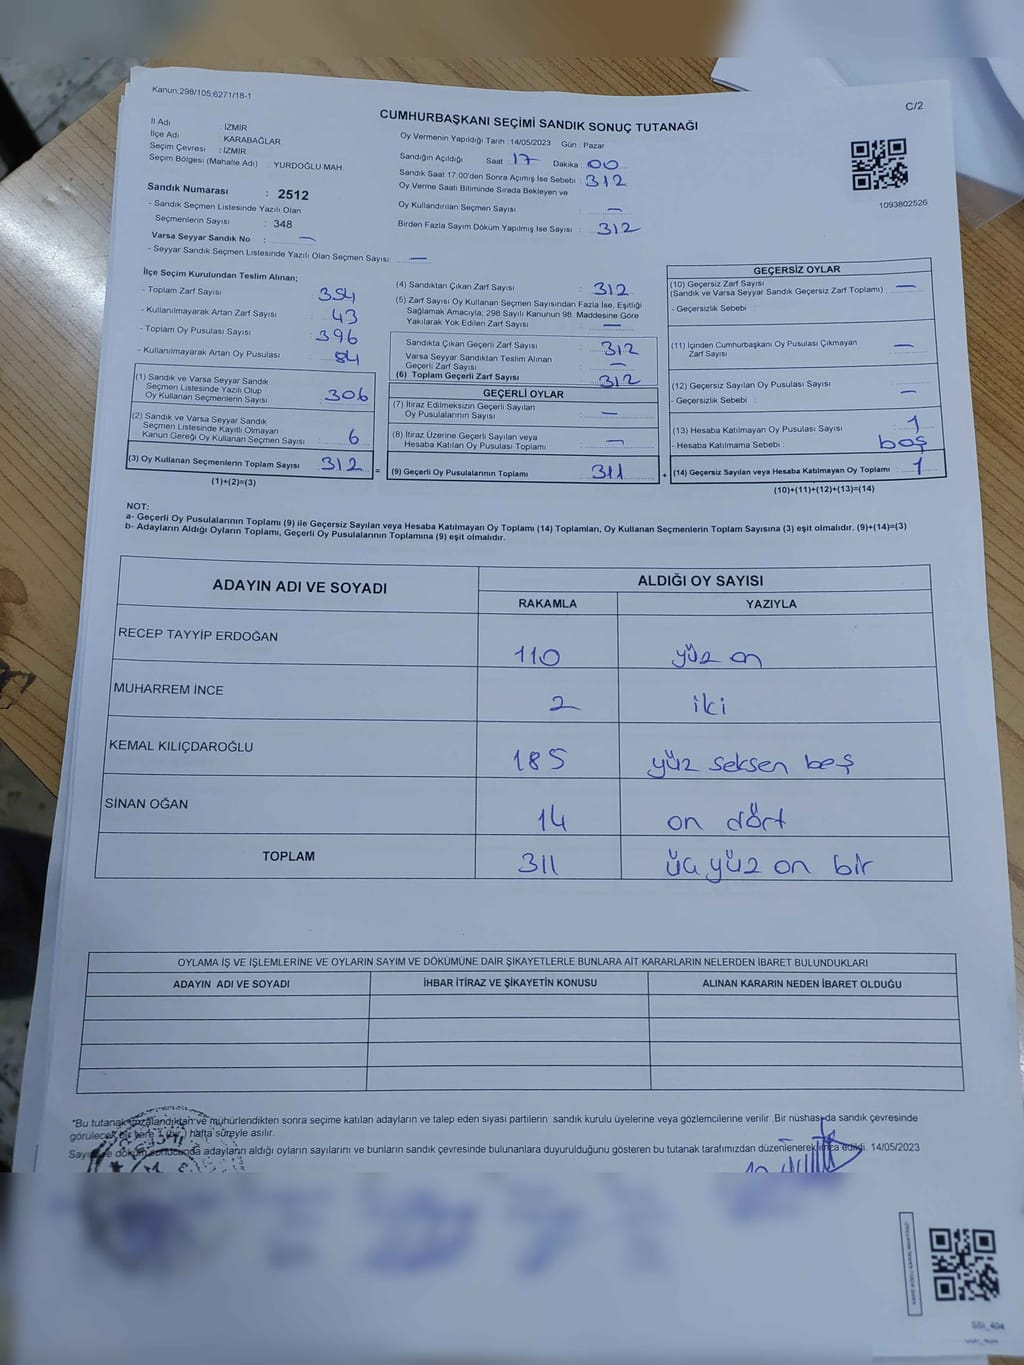 Kanun,298/105,6271/18-1
C/2
CUMHURBAŞKANI SEÇİMİ SANDIK SONUÇ TUTANAĞI
İl Adı : İZMİR
İlçe Adı : KARABAĞLAR
Seçim Çevresi : İZMİR
Seçim Bölgesi (Mahalle Adı) : YURDOĞLU MAH
Sandık Numarası : 2512
- Sandık Seçmen Listesinde Yazılı Olan
Seçmenlerin Sayısı : 348
Varsa Seyyar Sandık No : —
- Seyyar Sandık Seçmen Listesinde Yazılı Olan Seçmen Sayısı: —
Oy Vermenin Yapıldığı Tarih :14/05/2023 Gün : Pazar
Sandığın Açıldığı Saat 17 Dakika 00
Sandık Saat 17:00'den Sonra Açımış İse Sebebi : 312
Oy Verme Saati Bitiminde Sırada Bekleyen ve
Oy Kullandırılan Seçmen Sayısı : —
Birden Fazla Sayım Döküm Yapılmış İse Sayısı : 312
1093802526
İlçe Seçim Kurulundan Teslim Alınan;
- Toplam Zarf Sayısı : 354
- Kullanılmayarak Artan Zarf Sayısı : 43
- Toplam Oy Pusulası Sayısı : 396
- Kullanılmayarak Artan Oy Pusulası : 84
(1) Sandık ve Varsa Seyyar Sandık
Seçmen Listesinde Yazılı Olup
Oy Kullanan Seçmenlerin Sayısı : 306
(2) Sandık ve Varsa Seyyar Sandık
Seçmen Listesinde Kayıtlı Olmayan
Kanun Gereği Oy Kullanan Seçmen Sayısı : 6
(3) Oy Kullanan Seçmenlerin Toplam Sayısı : 312
(1)+(2)=(3)
(4) Sandıktan Çıkan Zarf Sayısı : 312
(5) Zarf Sayısı Oy Kullanan Seçmen Sayısından Fazla İse, Eşitliği
Sağlamak Amacıyla; 298 Sayılı Kanunun 98. Maddesine Göre
Yakılarak Yok Edilen Zarf Sayısı : —
Sandıkta Çıkan Geçerli Zarf Sayısı : 312
Varsa Seyyar Sandıktan Teslim Alınan
Geçerli Zarf Sayısı : —
(6) Toplam Geçerli Zarf Sayısı : 312
GEÇERLİ OYLAR
(7) İtiraz Edilmeksizin Geçerli Sayılan
Oy Pusulalarının Sayısı : —
(8) İtiraz Üzerine Geçerli Sayılan veya
Hesaba Katılan Oy Pusulası Toplamı : —
= (9) Geçerli Oy Pusulalarının Toplamı : 311
GEÇERSİZ OYLAR
(10) Geçersiz Zarf Sayısı
(Sandık ve Varsa Seyyar Sandık Geçersiz Zarf Toplamı) : —
- Geçersizlik Sebebi :
(11) İçinden Cumhurbaşkanı Oy Pusulası Çıkmayan
Zarf Sayısı : —
(12) Geçersiz Sayılan Oy Pusulası Sayısı : —
- Geçersizlik Sebebi :
(13) Hesaba Katılmayan Oy Pusulası Sayısı : 1
- Hesaba Katılmama Sebebi : boş
+ (14) Geçersiz Sayılan veya Hesaba Katılmayan Oy Toplamı : 1
(10)+(11)+(12)+(13)=(14)
NOT:
a- Geçerli Oy Pusulalarının Toplamı (9) ile Geçersiz Sayılan veya Hesaba Katılmayan Oy Toplamı (14) Toplamları, Oy Kullanan Seçmenlerin Toplam Sayısına (3) eşit olmalıdır. (9)+(14)=(3)
b- Adayların Aldığı Oyların Toplamı, Geçerli Oy Pusulalarının Toplamına (9) eşit olmalıdır.
ADAYIN ADI VE SOYADI ALDIĞI OY SAYISI
RAKAMLA YAZIYLA
RECEP TAYYİP ERDOĞAN 110 yüz on
MUHARREM İNCE 2 iki
KEMAL KILIÇDAROĞLU 185 yüz seksen beş
SİNAN OĞAN 14 on dört
TOPLAM 311 üç yüz on bir
OYLAMA İŞ VE İŞLEMLERİNE VE OYLARIN SAYIM VE DÖKÜMÜNE DAİR ŞİKAYETLERLE BUNLARA AİT KARARLARIN NELERDEN İBARET BULUNDUKLARI
ADAYIN ADI VE SOYADI İHBAR İTİRAZ VE ŞİKAYETİN KONUSU ALINAN KARARIN NEDEN İBARET OLDUĞU
"Bu tutanak imzalandıktan ve mühürlendikten sonra seçime katılan adayların ve talep eden siyasi partilerin sandık kurulu üyelerine veya gözlemcilerine verilir .Bir nüshası da sandık çevresinde
görülecek bir yere 1 (bir) hafta süreyle asılır.
Sayım ve döküm sonucunda adayların aldığı oyların sayılarını ve bunların sandık çevresinde bulunanlara duyurulduğunu gösteren bu tutanak tarafımızdan düzenlenerek imza edildi. 14/05/2023